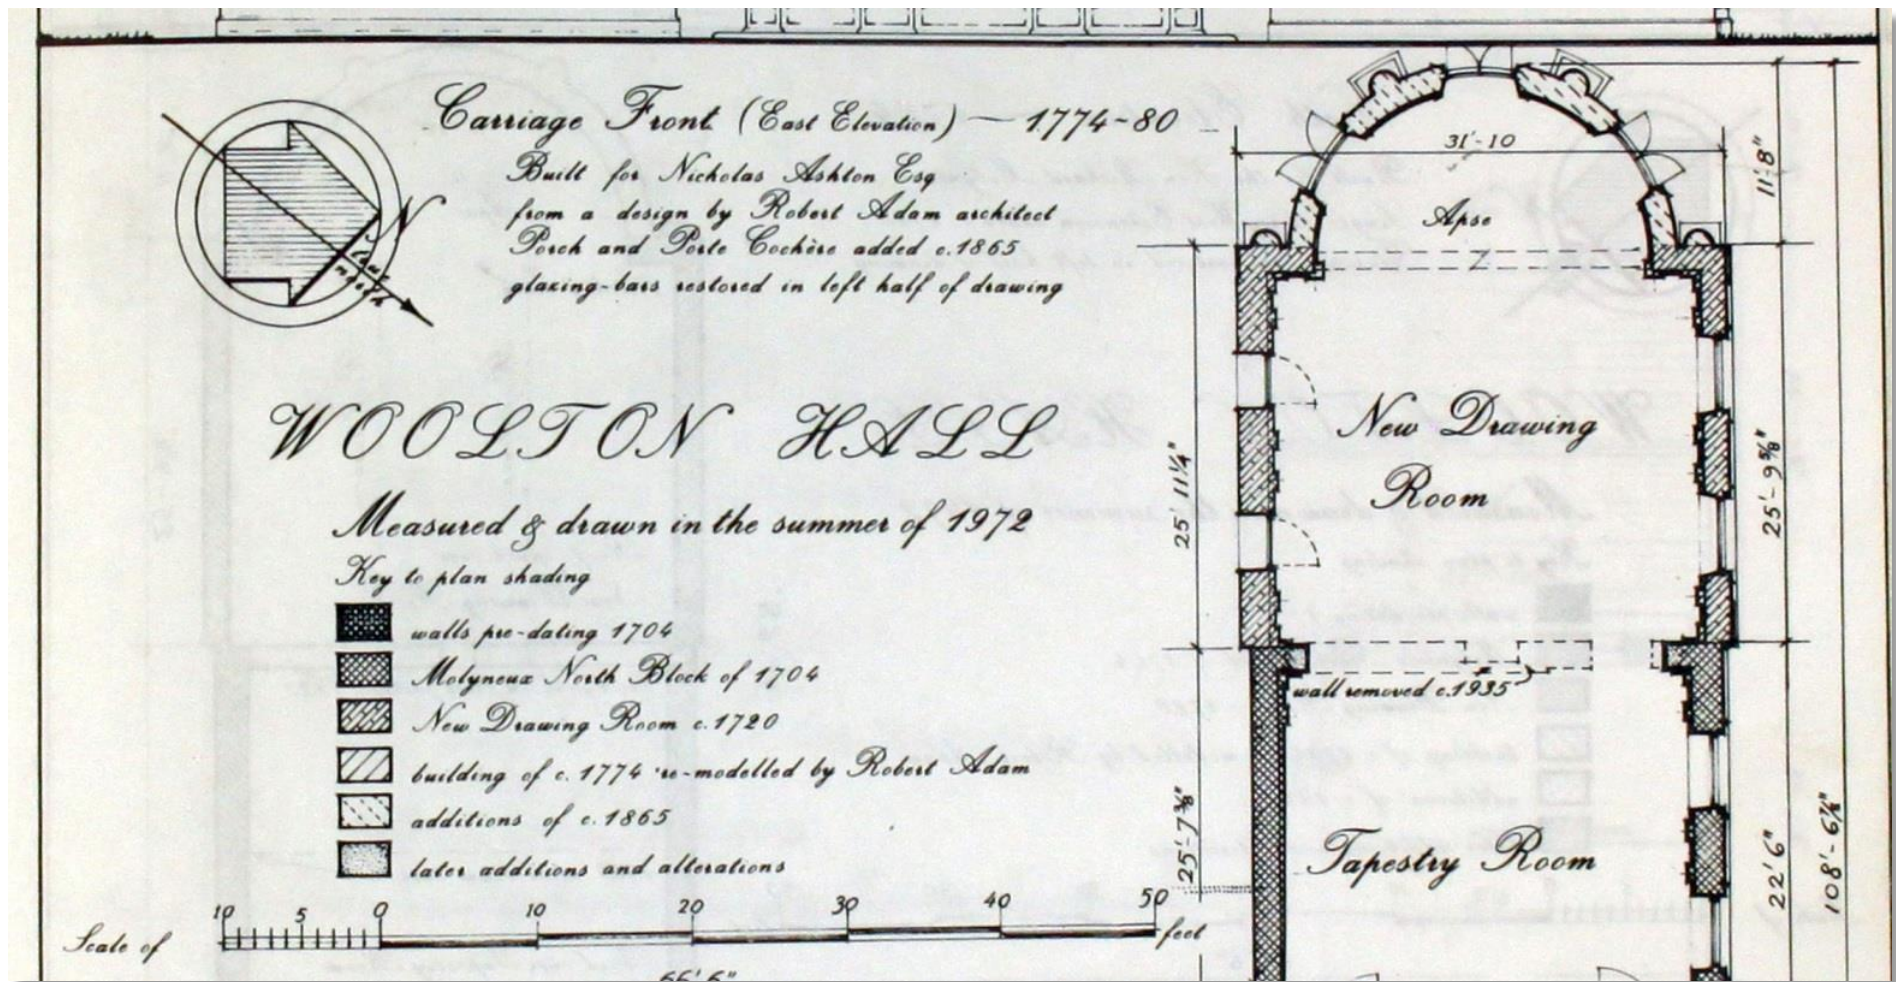 Carriage Front (East Elevation) — 1774-80
Built for Nicholas Ashton Esq
from a design by Robert Adam architect
Porch and Porte Cochère added c.1865
glazing-bars restored in left half of drawing
N
true north
WOOLTON HALL
Measured & drawn in the summer of 1972
Key to plan shading
walls pre-dating 1704
Molyneux North Block of 1704
New Drawing Room c.1720
building of c.1774 re-modelled by Robert Adam
additions of c.1865
later additions and alterations
10 5 0 10 20 30 40 50
Scale of feet
66'6"
31'-10
11'-8"
Apse
New Drawing
Room
25' 11¼"
25'-9⅝"
wall removed c.1935
Tapestry Room
25'-7⅜"
22'6"